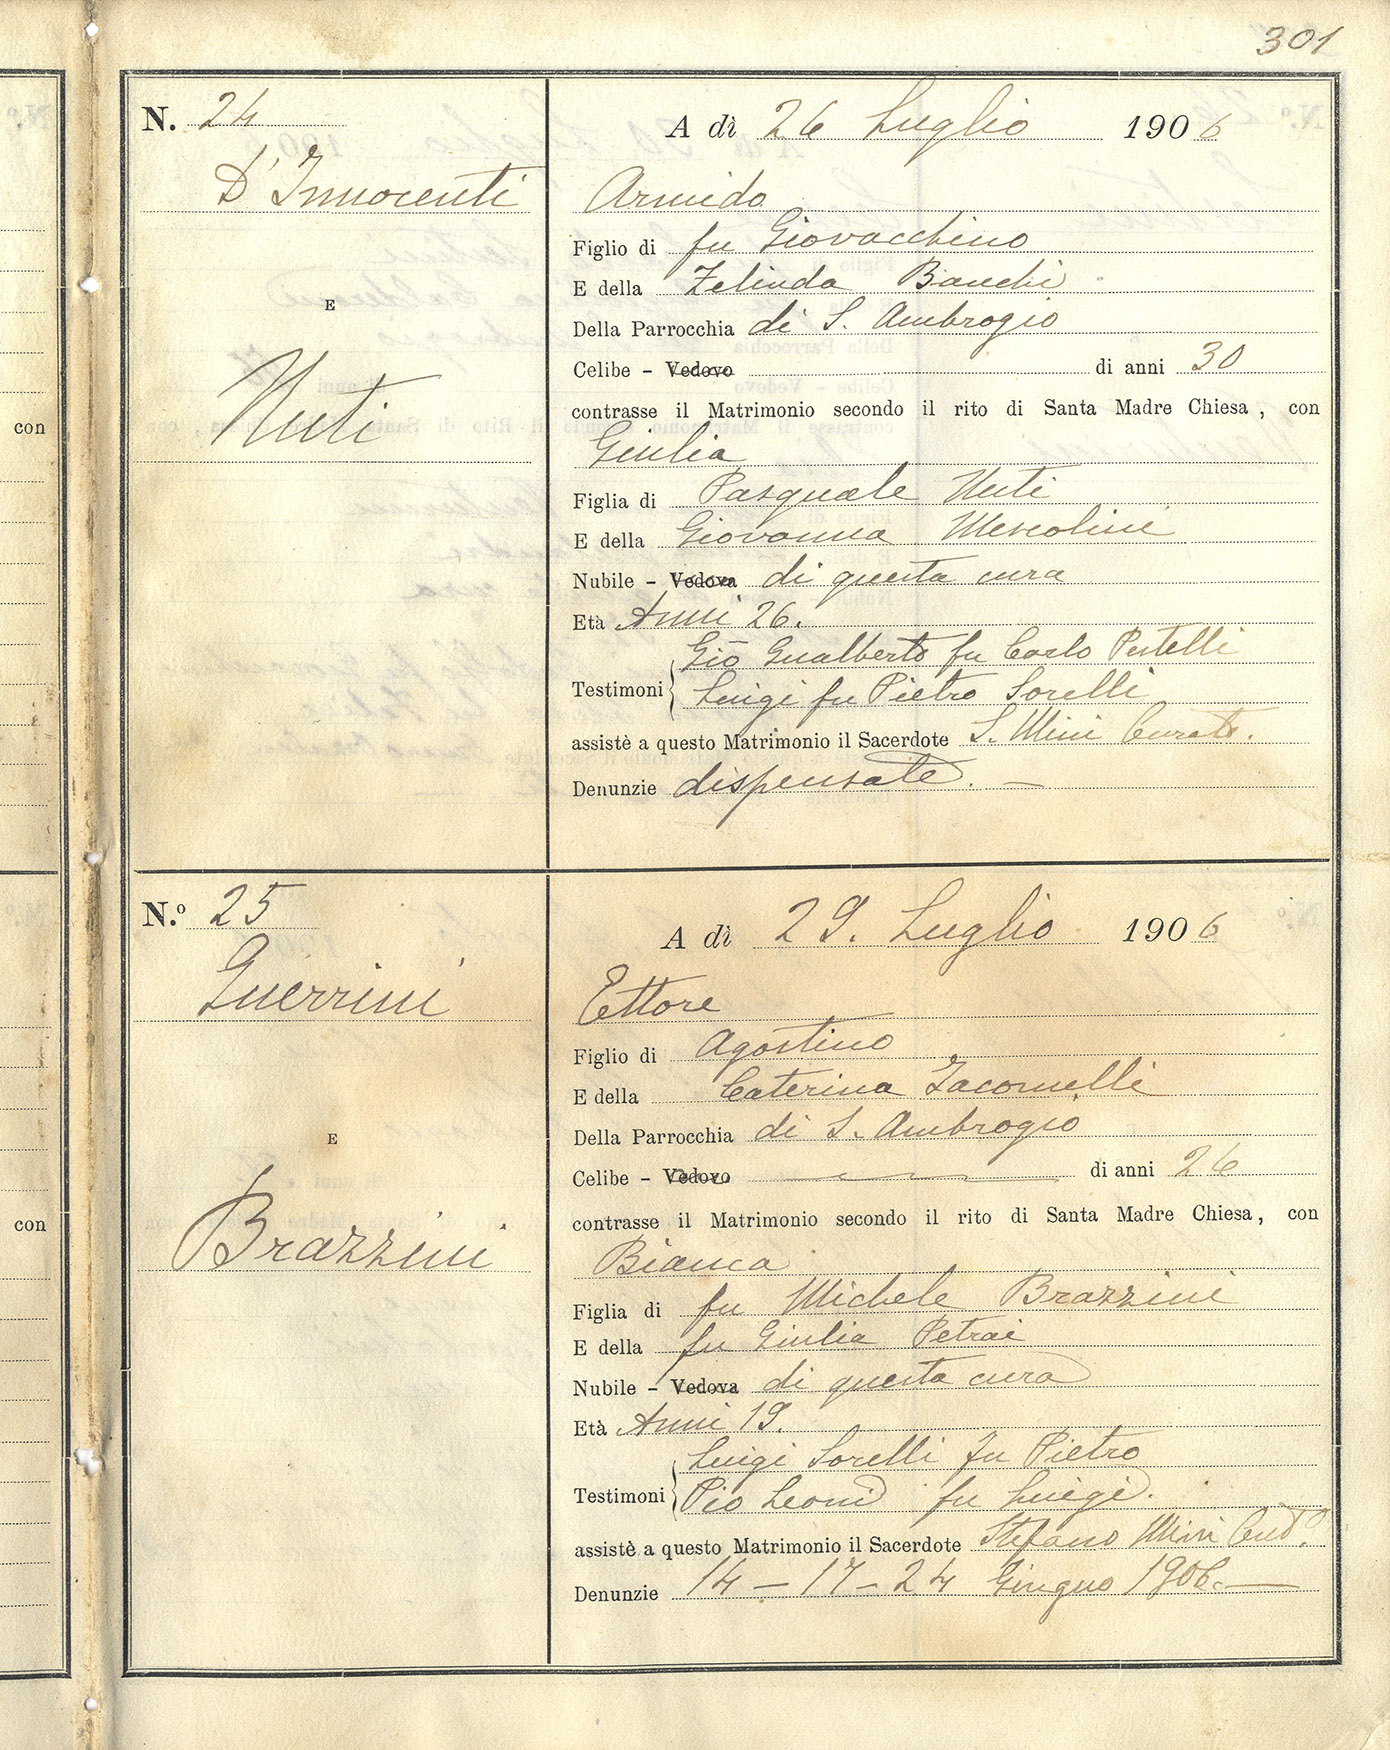 301
N. 24
A dì 26 Luglio 1906
D'Innocenti
Armido
Figlio di fu Giovacchino
E della Zelinda Bianchi
E
Della Parrocchia di S. Ambrogio
Celibe - Vedovo di anni 30
Nuti
contrasse il Matrimonio secondo il rito di Santa Madre Chiesa, con
con
Giulia
Figlia di Pasquale Nuti
E della Giovanna Mescolini
Nubile - Vedova di questa cura
Età Anni 26.
Gio Gualberto fu Carlo Pestelli
Testimoni
Luigi fu Pietro Sorelli
assistè a questo Matrimonio il Sacerdote S. Mini Curato.
Denunzie dispensate. —
N.º 25
A dì 29. Luglio 1906
Guerrini
Ettore
Figlio di Agostino
E della Caterina Iacomelli
E
Della Parrocchia di S. Ambrogio
Celibe - Vedovo — di anni 26
Brazzini
contrasse il Matrimonio secondo il rito di Santa Madre Chiesa, con
con
Bianca
Figlia di fu Michele Brazzini
E della fu Giulia Petrai
Nubile - Vedova di questa cura
Età Anni 19.
Luigi Sorelli fu Pietro
Testimoni
Pio Leoni fu Luigi.
assistè a questo Matrimonio il Sacerdote Stefano Mini
Denunzie 14 - 17 - 24 Giugno 1906. —